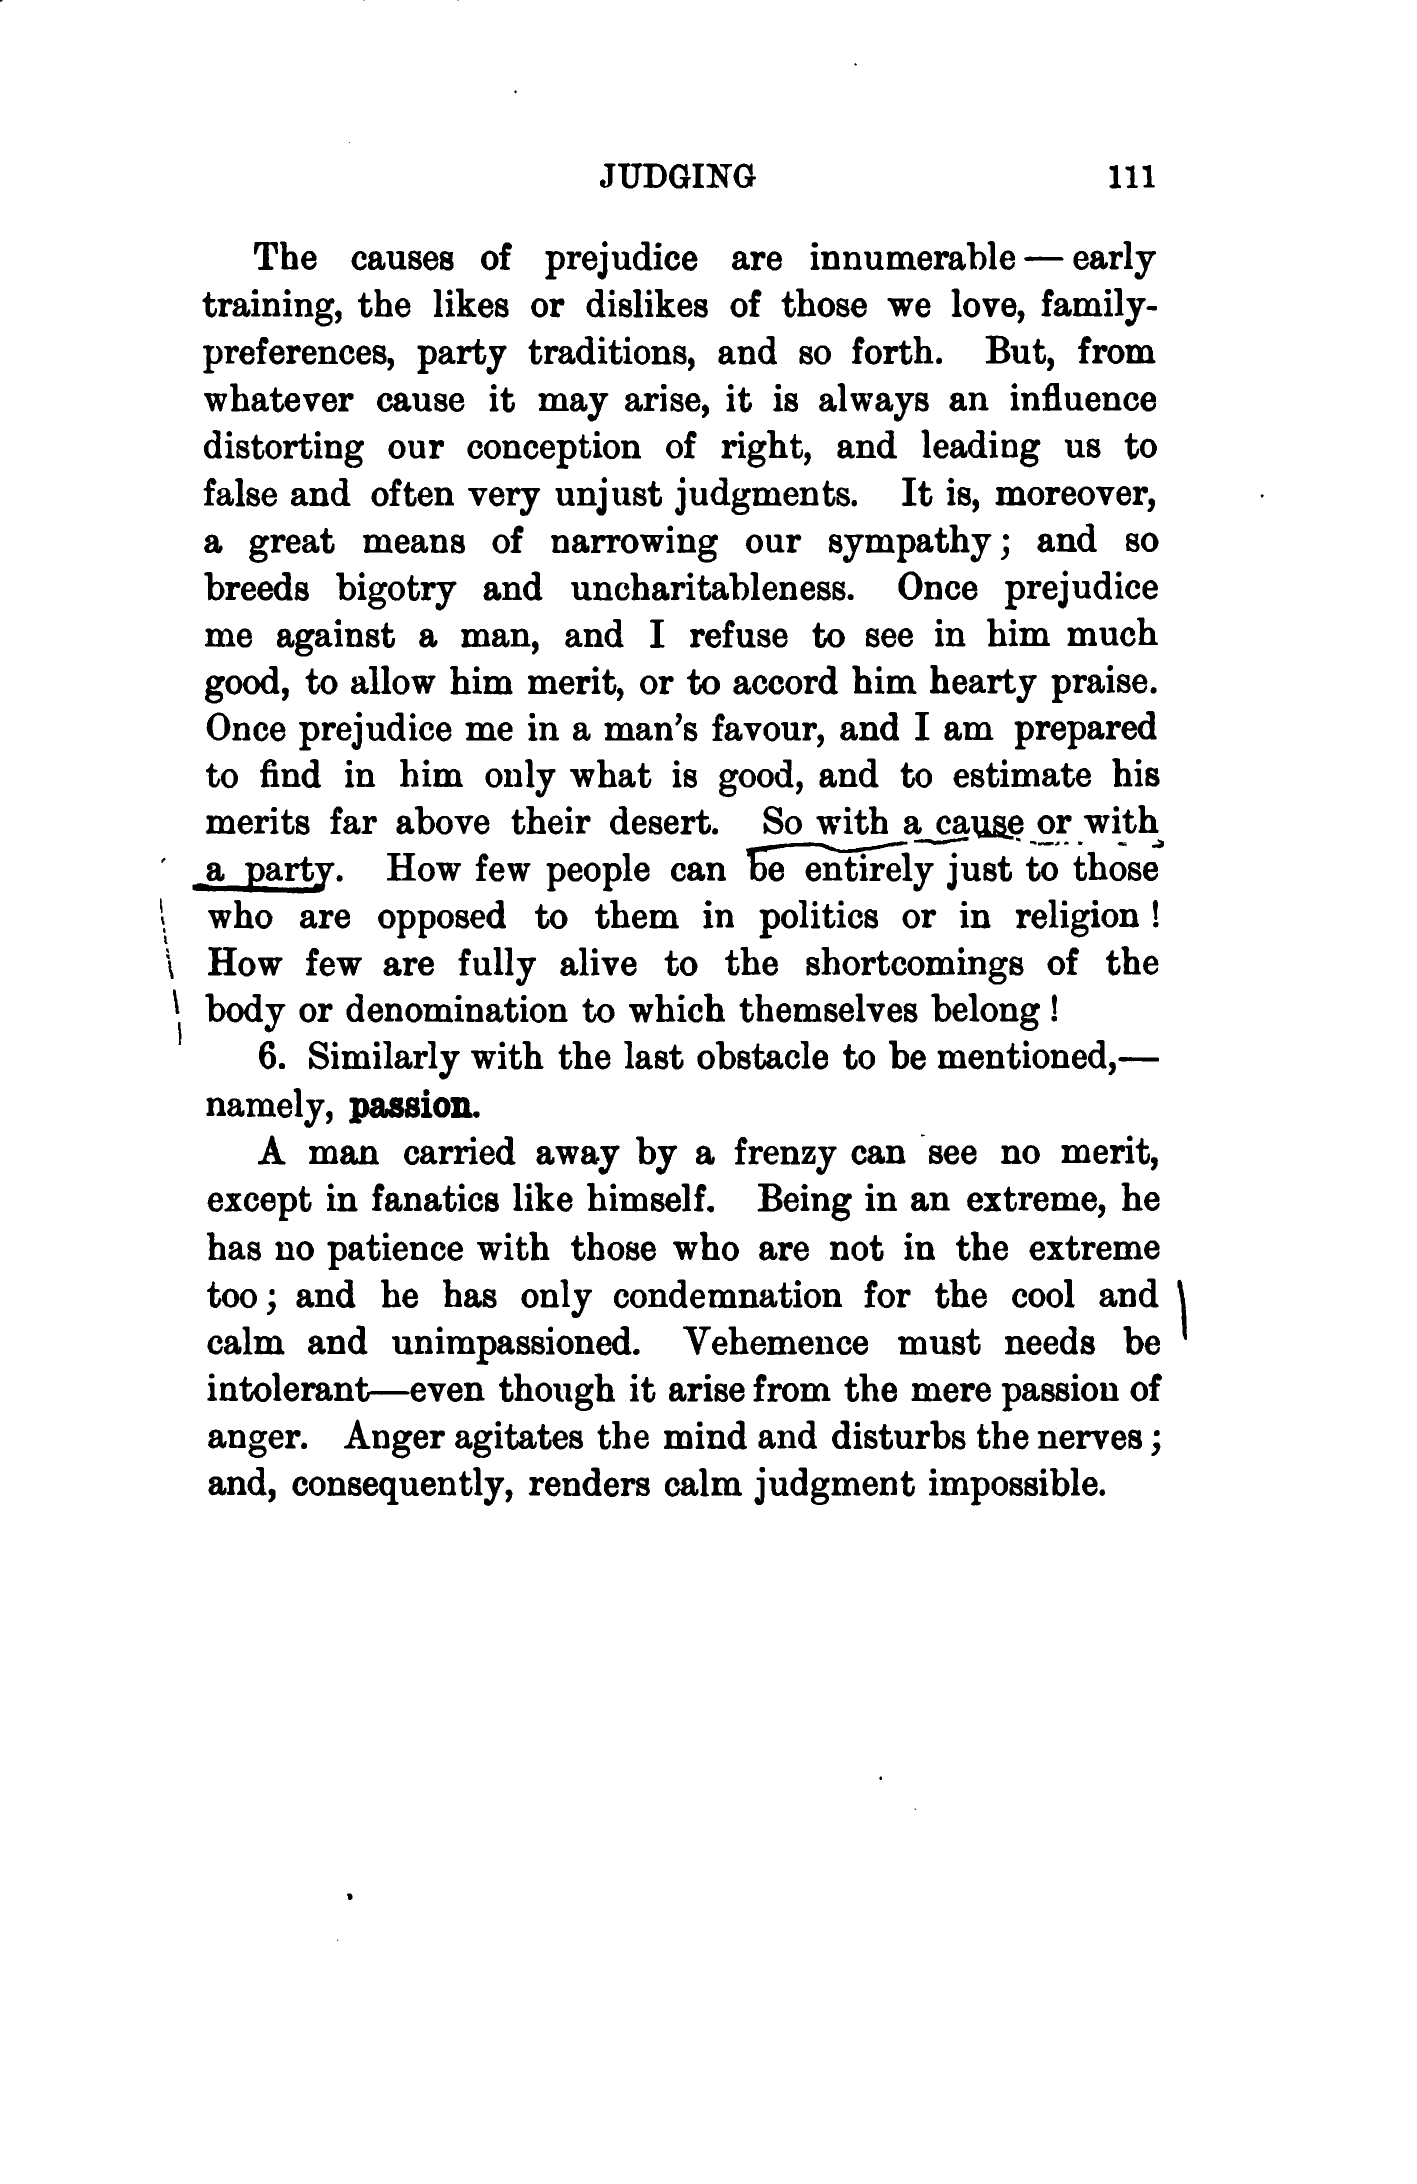 JUDGING 111
The causes of prejudice are innumerable — early
training, the likes or dislikes of those we love, family-
preferences, party traditions, and so forth. But, from
whatever cause it may arise, it is always an influence
distorting our conception of right, and leading us to
false and often very unjust judgments. It is, moreover,
a great means of narrowing our sympathy; and so
breeds bigotry and uncharitableness. Once prejudice
me against a man, and I refuse to see in him much
good, to allow him merit, or to accord him hearty praise.
Once prejudice me in a man's favour, and I am prepared
to find in him only what is good, and to estimate his
merits far above their desert. So with a cause or with
a party. How few people can be entirely just to those
who are opposed to them in politics or in religion!
How few are fully alive to the shortcomings of the
body or denomination to which themselves belong!
6. Similarly with the last obstacle to be mentioned,—
namely, passion.
A man carried away by a frenzy can see no merit,
except in fanatics like himself. Being in an extreme, he
has no patience with those who are not in the extreme
too; and he has only condemnation for the cool and
calm and unimpassioned. Vehemence must needs be
intolerant—even though it arise from the mere passion of
anger. Anger agitates the mind and disturbs the nerves;
and, consequently, renders calm judgment impossible.